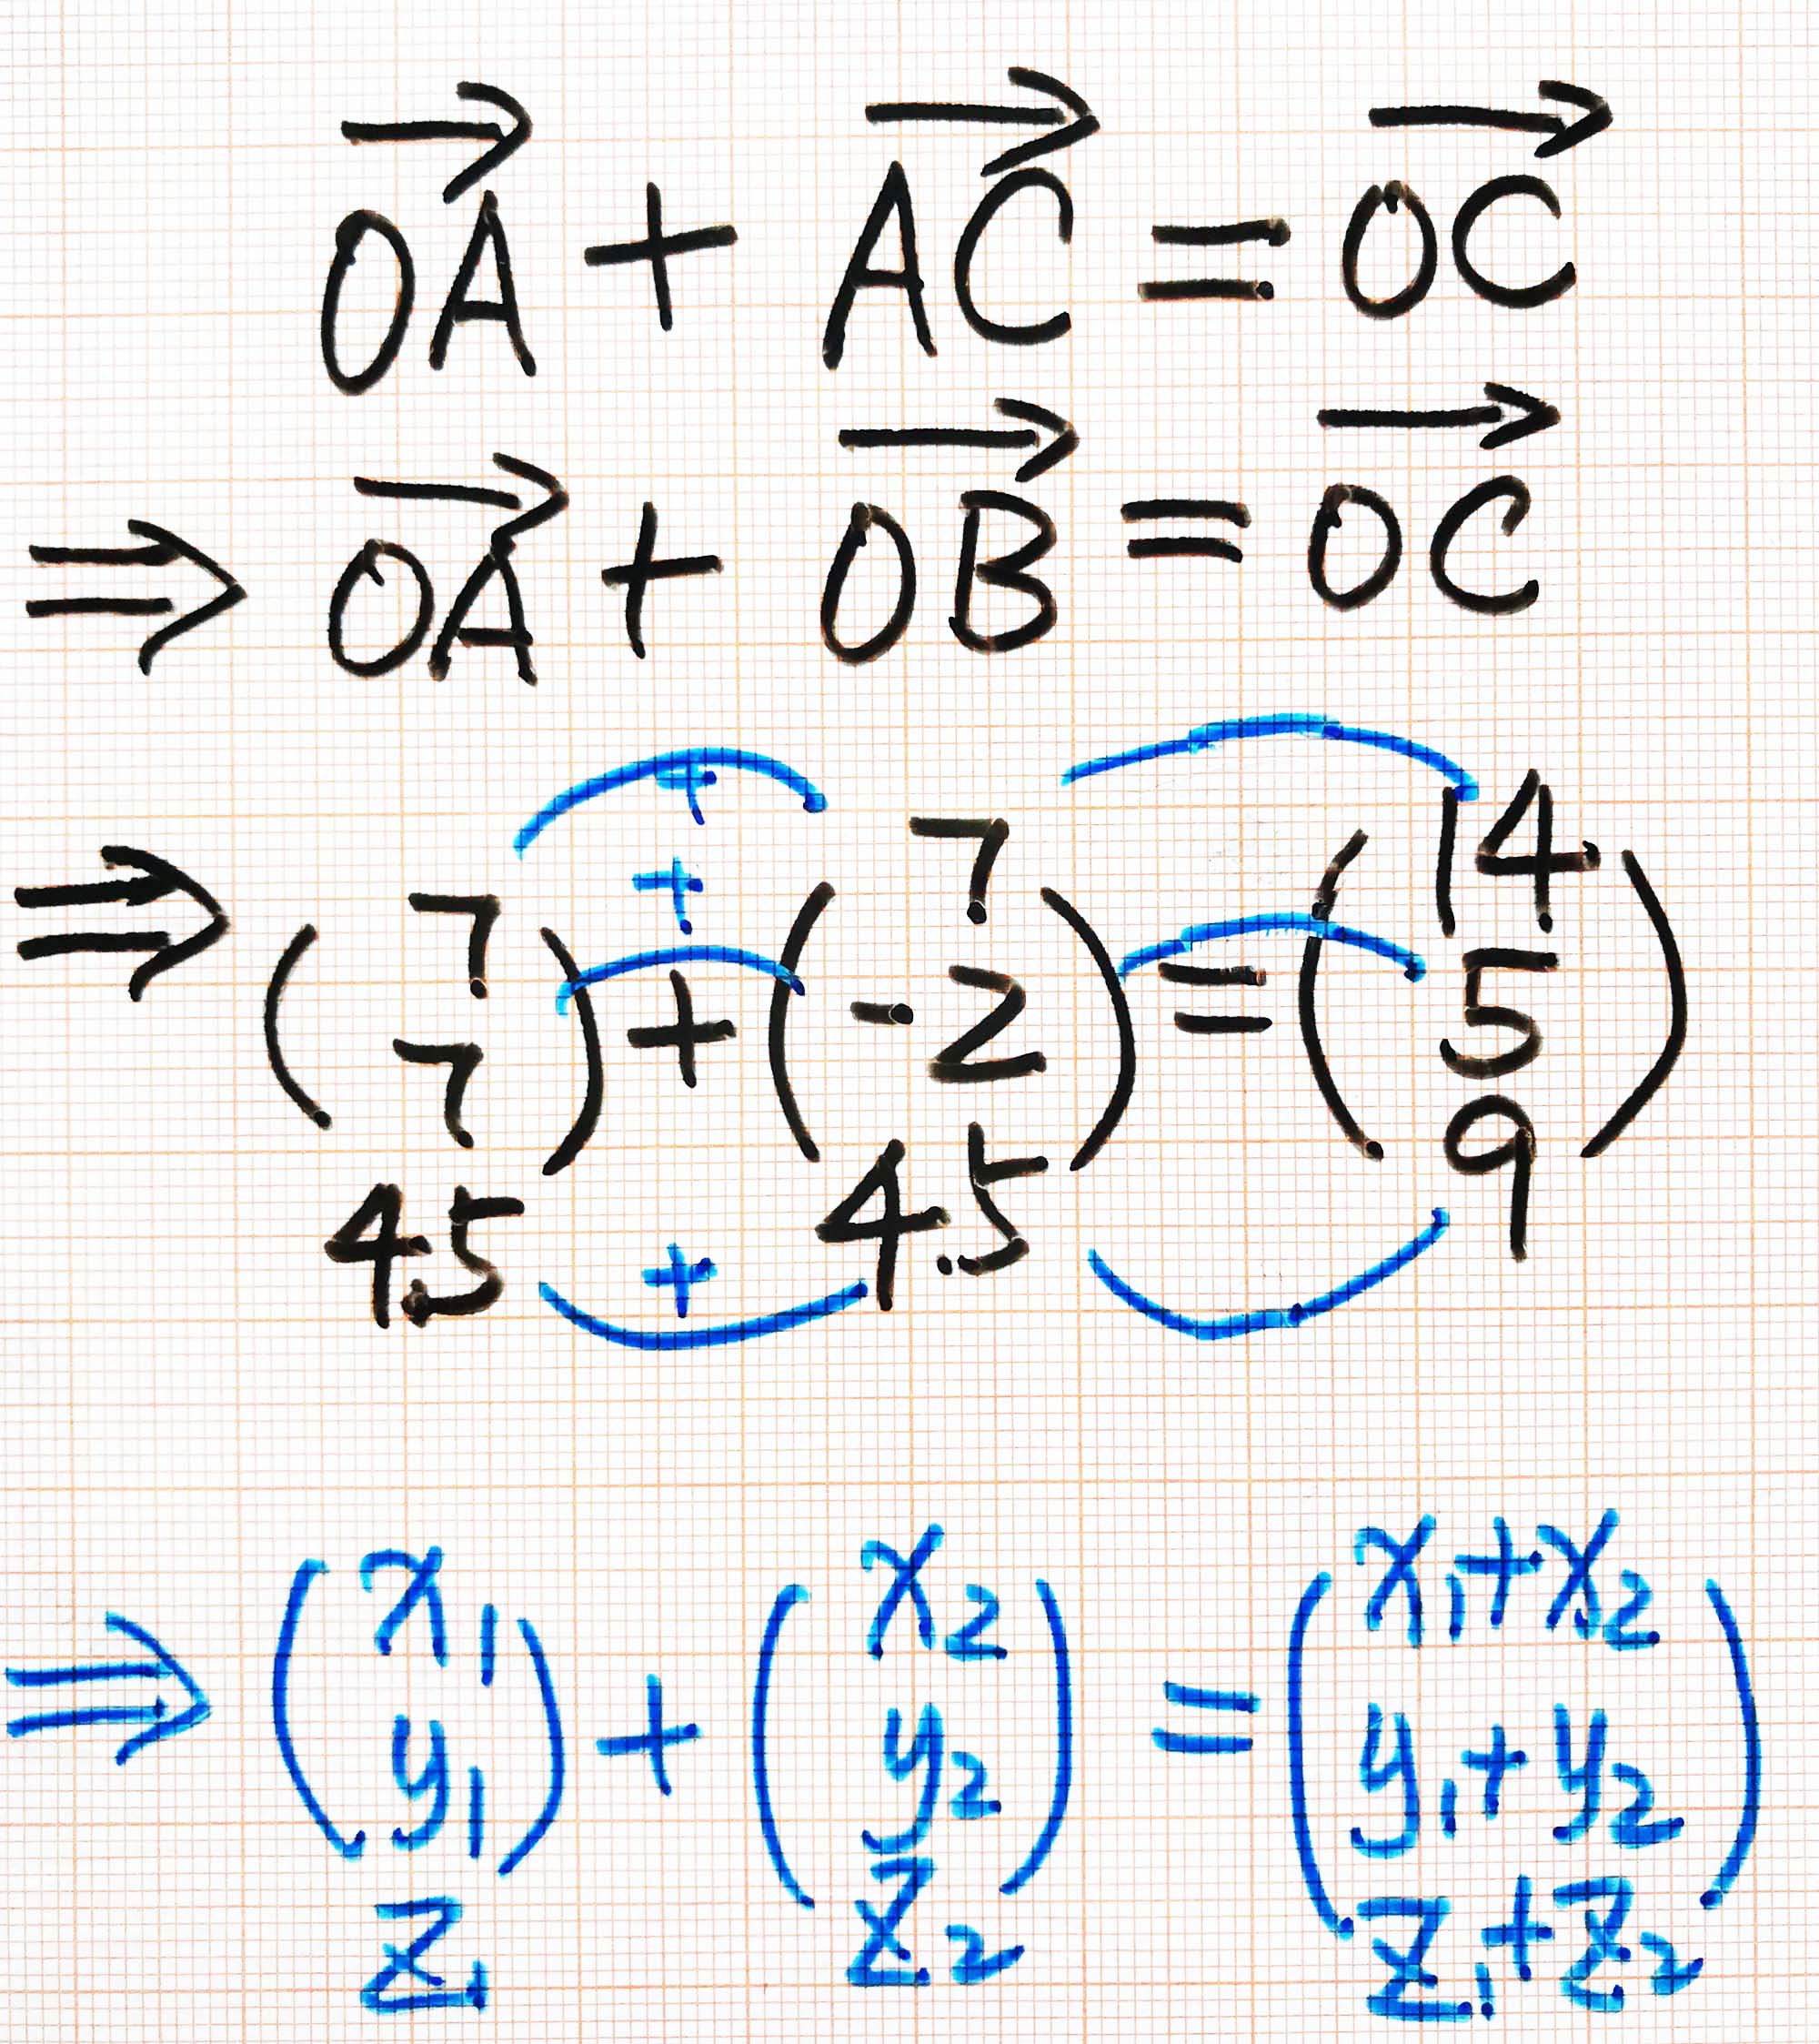 $\overrightarrow{OA} + \overrightarrow{AC} = \overrightarrow{OC}$
$\Rightarrow \overrightarrow{OA} + \overrightarrow{OB} = \overrightarrow{OC}$
$\Rightarrow \begin{pmatrix} 7 \\ 7 \\ 4.5 \end{pmatrix} + \begin{pmatrix} 7 \\ -2 \\ 4.5 \end{pmatrix} = \begin{pmatrix} 14 \\ 5 \\ 9 \end{pmatrix}$
+
+
+
$\Rightarrow \begin{pmatrix} x_1 \\ y_1 \\ z_1 \end{pmatrix} + \begin{pmatrix} x_2 \\ y_2 \\ z_2 \end{pmatrix} = \begin{pmatrix} x_1+x_2 \\ y_1+y_2 \\ z_1+z_2 \end{pmatrix}$